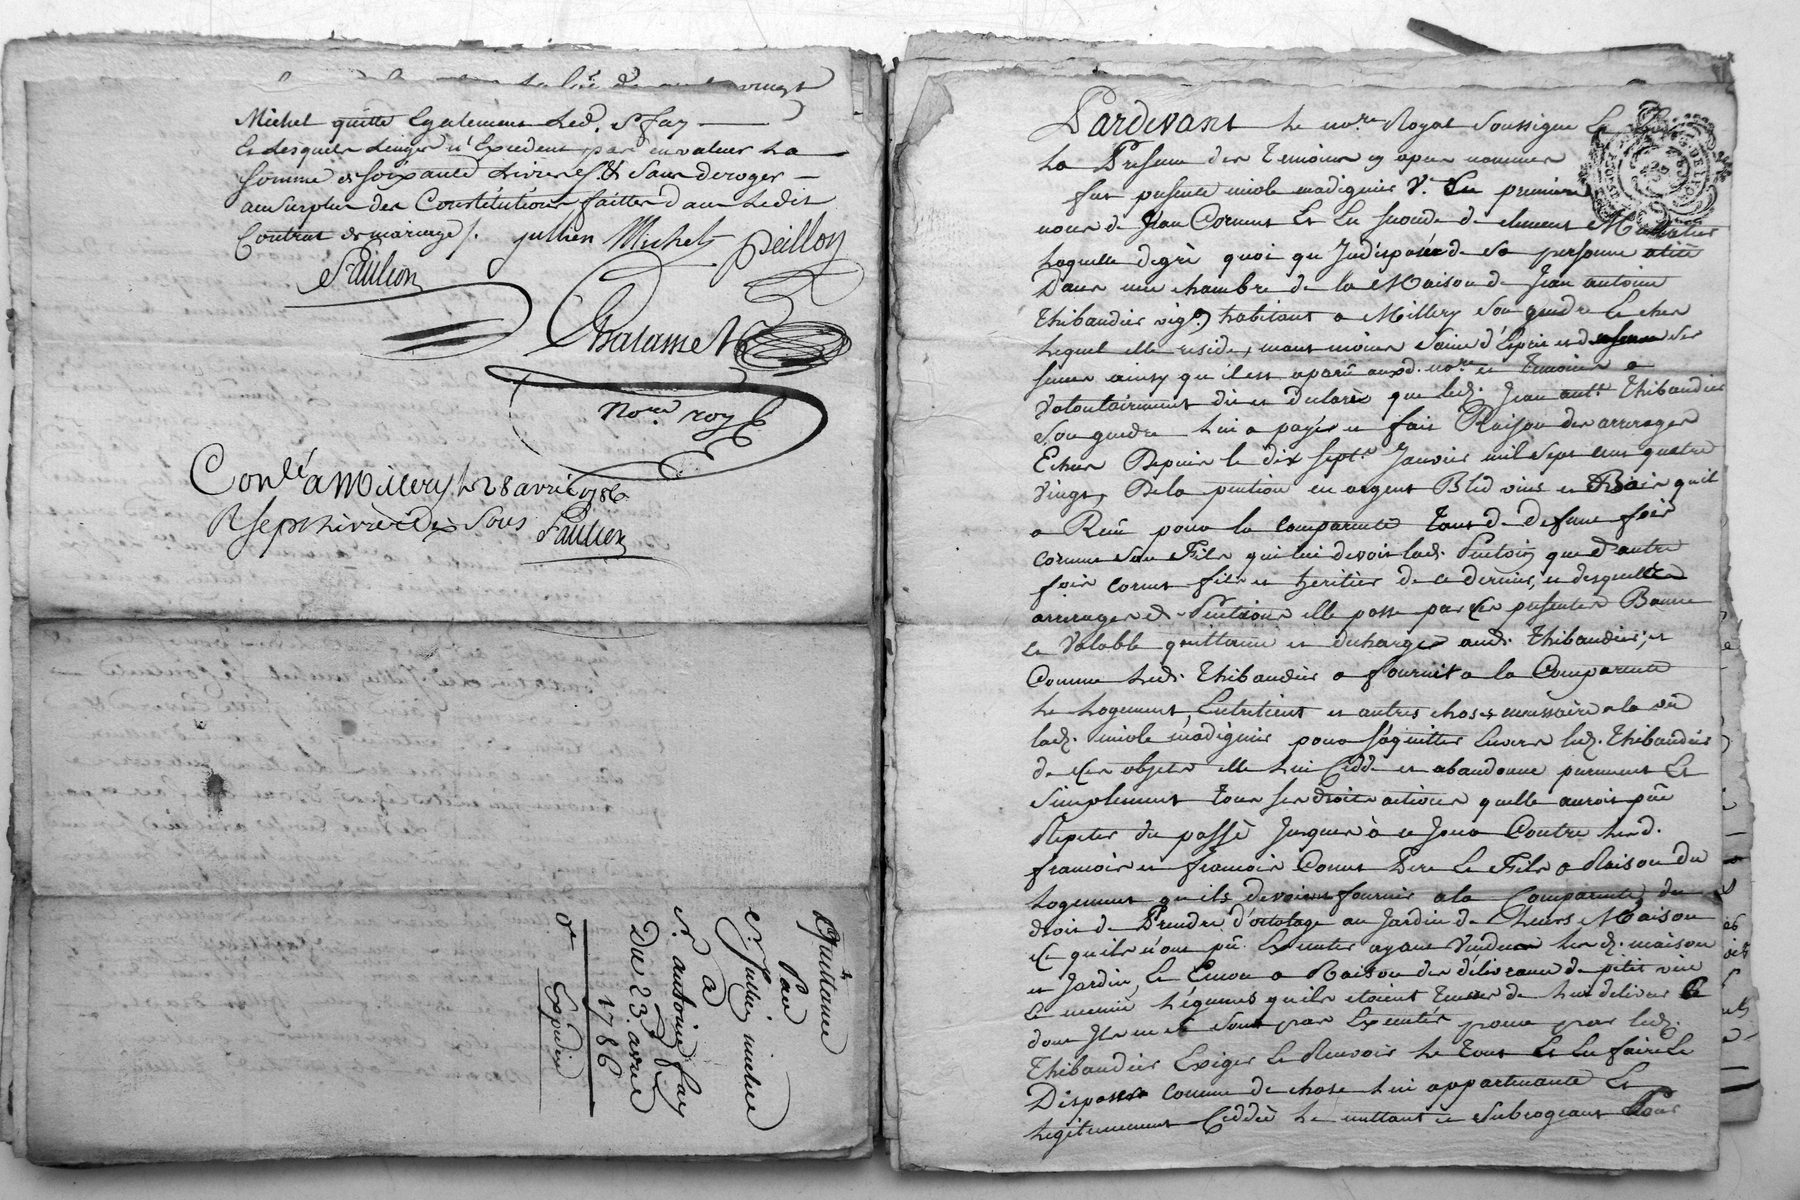 Michel quitte Egalement Led. Sr fay
Et lesquels Linges n'Excedent pas en valeur La
somme de soixante Livres, Et sans deroger
au surplus des Constitutions faittes dans Ledit
Contrat de mariage /. jullien Michel peillon
Paulien
Chalasme
nore. roy.
Conlé. a Millery le 28 avril 1786
R sept Livres dix sous Paulien
Quittance
Par
er. Jullien michel
a
Sr. antoine fay
Du 23. avril
1786
Expedié
Pardevant Le nore. Royal Soussigné Et
La Presence des temoins cy apres nommes
fut presente nicole madignier Ve. En premiere
noces de Jean Cornut Et En seconde de clement
Laquelle de gré quoi qu'Indisposée de sa personne alitée
Dans une chambre de la Maison de Jean antoine
Thibaudier vigon. habitant a Millery son gendre Et chez
Lequel elle reside, neant moins saine d'Esprit et de ses
sens ainsy qu'il est aparu auxd. nore. et temoins a
volontairement dit et declaré que led. Jean antne. Thibaudier
son gendre Lui a payé et fait Raison des arrerages
Echus Depuis le dix sept Janvier mil sept cent quatre
vingt, De la pention en argent Bled vin et Bois qu'il
a Reçû pour la comparente tant de defunt fois
Cornut son Fils qui lui devoit lad. Pention que d'autre
fois Cornut fils et heritier de ce dernier, et desquelles
arrerages de Pention elle passe par Ces presentes Bonne
et Valable quittance et decharge aud. Thibaudier; et
Comme Led. Thibaudier a fournit a la Comparente
Le Logement, Entretient et autres choses necessaire a la vie
lad. nicole madignier pour s'aquitter Envers led. Thibaudier
de Ces objets elle Lui Cedde et abandonne purement Et
simplement tous ses droits actions quelle auroit pû
Repeter du passé Jusques à ce Jour Contre Lesd.
francois et francois Cornut Pere Et Fils a Raison du
Logement qu'ils devoient fournir a la Comparente, du
droit de Prendre d'ortolage au Jardin de Leurs Maison
Ce qu'ils n'ont pû Executer ayant Vendu Lesd. maison
et Jardin, Et Encore a Raison des délivrance de petit vin
Et menue Légumes qu'ils etoient tenus de Lui delivrer
dont Ils ne se sont pas Executés pour par led.
Thibaudier Exiger Et Recevoir Le tout Et En faire Et
Disposer comme de chose Lui appartenante Et
Legitimement Ceddée Le mettant et subrogeant Pour